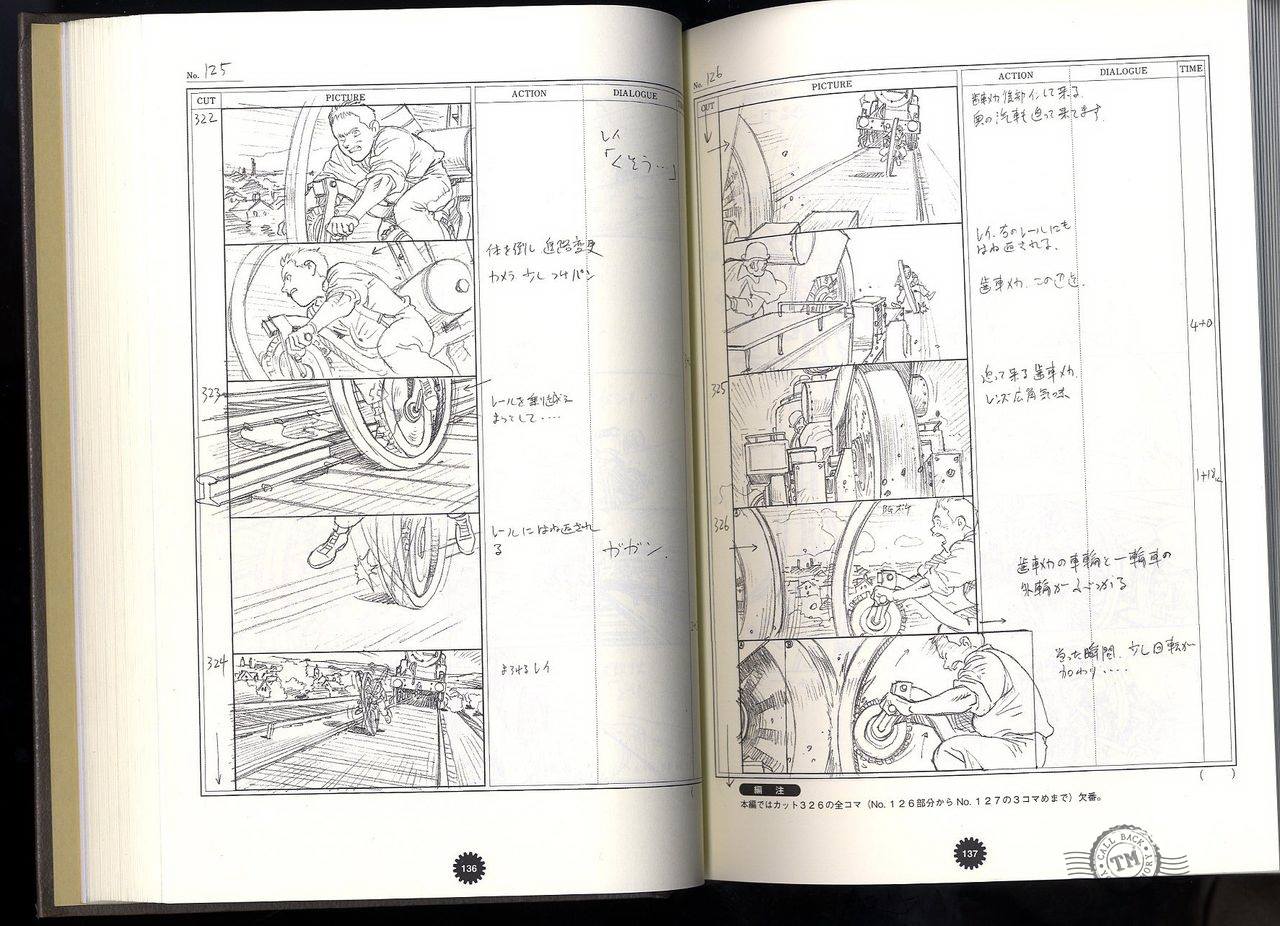 No. 125
CUT PICTURE ACTION DIALOGUE
322
レイ
「くそう…」
体を倒し 進路変更
カメラ 少しつけパン
323
レールを乗り越え
ようとして‥‥
レールにはね返され
る
ガガン
324
よろけるレイ
136
No. 126
CUT PICTURE ACTION DIALOGUE TIME
歯車メカ
奥の汽車も迫って来てます
レイ、右のレールにも
はね返される。
歯車メカ、この辺
4+0
325
迫って来る歯車メカ
レンズ広角気味
1+18
326
歯車メカの車輪と一輪車の
外輪がぶつかる
当った瞬間、少し回転が
加わり‥‥
( )
編 注
本編ではカット326の全コマ（No.126部分からNo.127の3コマめまで）欠番。
137
CALL BACK
TM